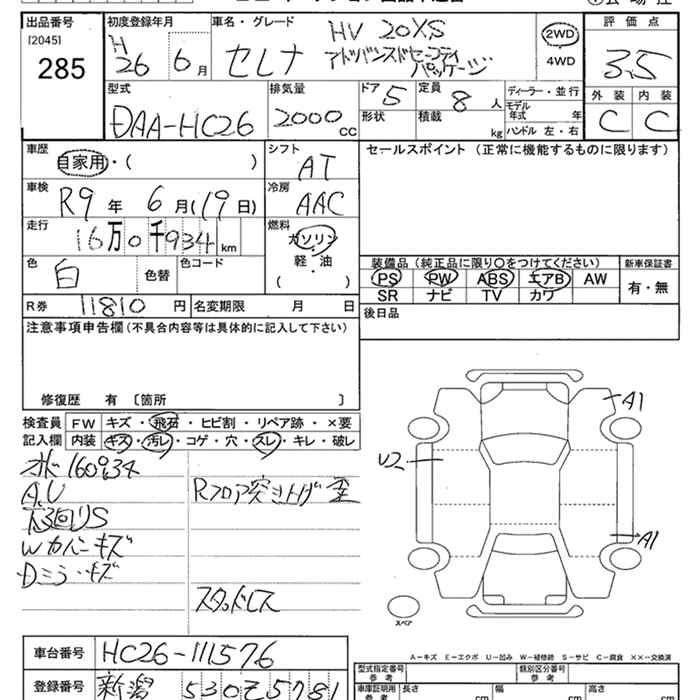 出品番号 初度登録年月 車名・グレード 評価点
[2045] H HV 20XS 2WD
285 26 6月 セレナ アドバンスドセーフティパッケージ 4WD 3.5
型式 排気量 ドア 定員 ディーラー・並行 外装 内装
DAA-HC26 2000cc 5 8人 モデル年式 年 C C
形状 積載 kg ハンドル 左・右
車歴 シフト セールスポイント (正常に機能するものに限ります)
自家用・( ) AT
車検 冷房
R9年 6月(19日) AAC
走行 燃料
16万0千934km ガソリン
色 色替 色コード 軽・油
白 ( )
装備品 (純正品に限り○をつけてください) 新車保証書
PS PW ABS エアB AW 有・無
SR ナビ TV カワ
R券 11810円 名変期限 月 日 後日品
注意事項申告欄 (不具合内容等は具体的に記入して下さい)
修復歴 有 〔箇所 〕
検査員 FW キズ・飛石・ヒビ割・リペア跡・×要
記入欄 内装 キズ・汚レ・コゲ・穴・スレ・キレ・破レ
A1
U2
A1
160934
A.U Rフロア突き上げ歪
下回りS
Wカバーキズ
Dミラーキズ
スタッドレス
スペア
A－キズ E－エクボ U－凹み W－補修跡 S－サビ C－腐食 ××－交換済
車台番号 HC26-111576
登録番号 新潟 530 Z 5781
型式指定番号 参考 類別区分番号 参考
車庫証明用 参考 長さ cm 幅 cm 高さ cm